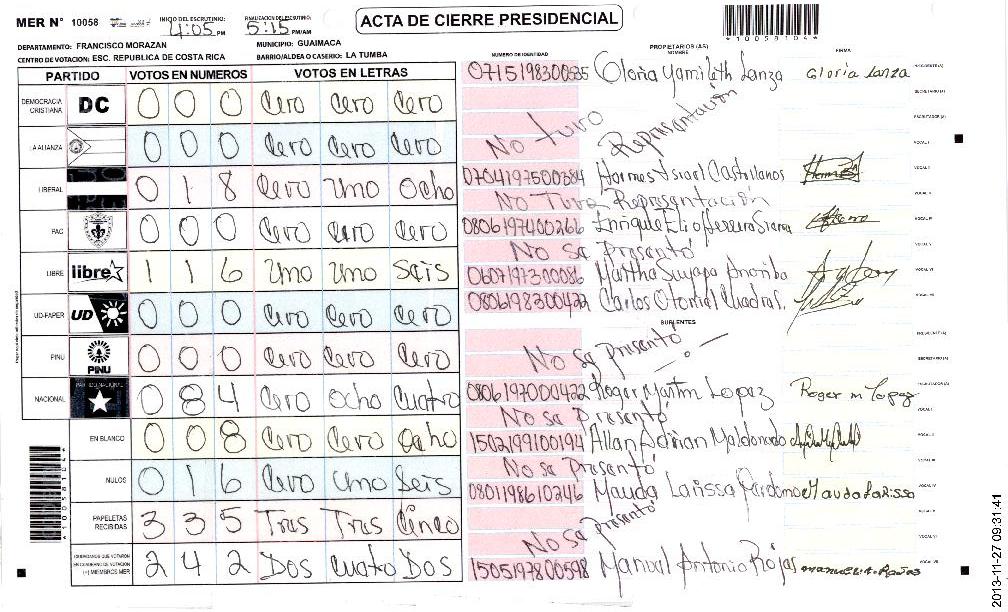 MER N° 10058
INICIO DEL ESCRUTINIO: 4:05 PM
FINALIZACION DEL ESCRUTINIO: 5:15 PM/AM
ACTA DE CIERRE PRESIDENCIAL
*10058104*
DEPARTAMENTO: FRANCISCO MORAZAN
MUNICIPIO: GUAIMACA
CENTRO DE VOTACION: ESC. REPUBLICA DE COSTA RICA
BARRIO/ALDEA O CASERIO: LA TUMBA
NUMERO DE IDENTIDAD
PROPIETARIOS (AS)
NOMBRE
FIRMA
PARTIDO VOTOS EN NUMEROS VOTOS EN LETRAS
DEMOCRACIA CRISTIANA DC 0 0 0 Cero Cero Cero
LA ALIANZA 0 0 0 Cero Cero Cero
LIBERAL 0 1 8 Cero Uno Ocho
PAC 0 0 0 Cero Cero Cero
LIBRE libre 1 1 6 Uno Uno Seis
UD-FAPER UD 0 0 0 Cero Cero Cero
PINU PINU 0 0 0 Cero Cero Cero
NACIONAL PARTIDO NACIONAL 0 8 4 Cero Ocho Cuatro
EN BLANCO 0 0 8 Cero Cero Ocho
NULOS 0 1 6 Cero Uno Seis
PAPELETAS RECIBIDAS 3 3 5 Tres Tres Cinco
CIUDADANOS QUE VOTARON EN CUADERNO DE VOTACION (+) MIEMBROS MER 2 4 2 Dos Cuatro Dos
Gloria Yamileth Lanza Gloria Lanza PRESIDENTE (A)
SECRETARIO (A)
ESCRUTADOR (A)
No tuvo Representación VOCAL I
0704197500384 Hormes Isrial Castillanos VOCAL II
No Tuvo Representación
0806197400266 Enrique Elio Herrera Sierra VOCAL IV
No Se Presentó VOCAL V
0607197300086 Martha Suyapa VOCAL VI
0806198300422 Carlos Otoniel Cuadras. VOCAL VII
SUPLENTES
PRESIDENTE (A)
No se presentó SECRETARIO (A)
0806197000422 Roger Martin Lopez Roger m Lopez ESCRUTADOR (A)
No se Presentó VOCAL I
1502199100194 Allan Adrian Maldonado VOCAL II
No se Presentó VOCAL III
0801198610246 Mauda Larissa Mauda Larissa VOCAL IV
No se presentó VOCAL VI
1505197800598 Manuel Antonio Rojas manuel A. Rojas VOCAL VII
*10058104*
2013-11-27 09:31:41